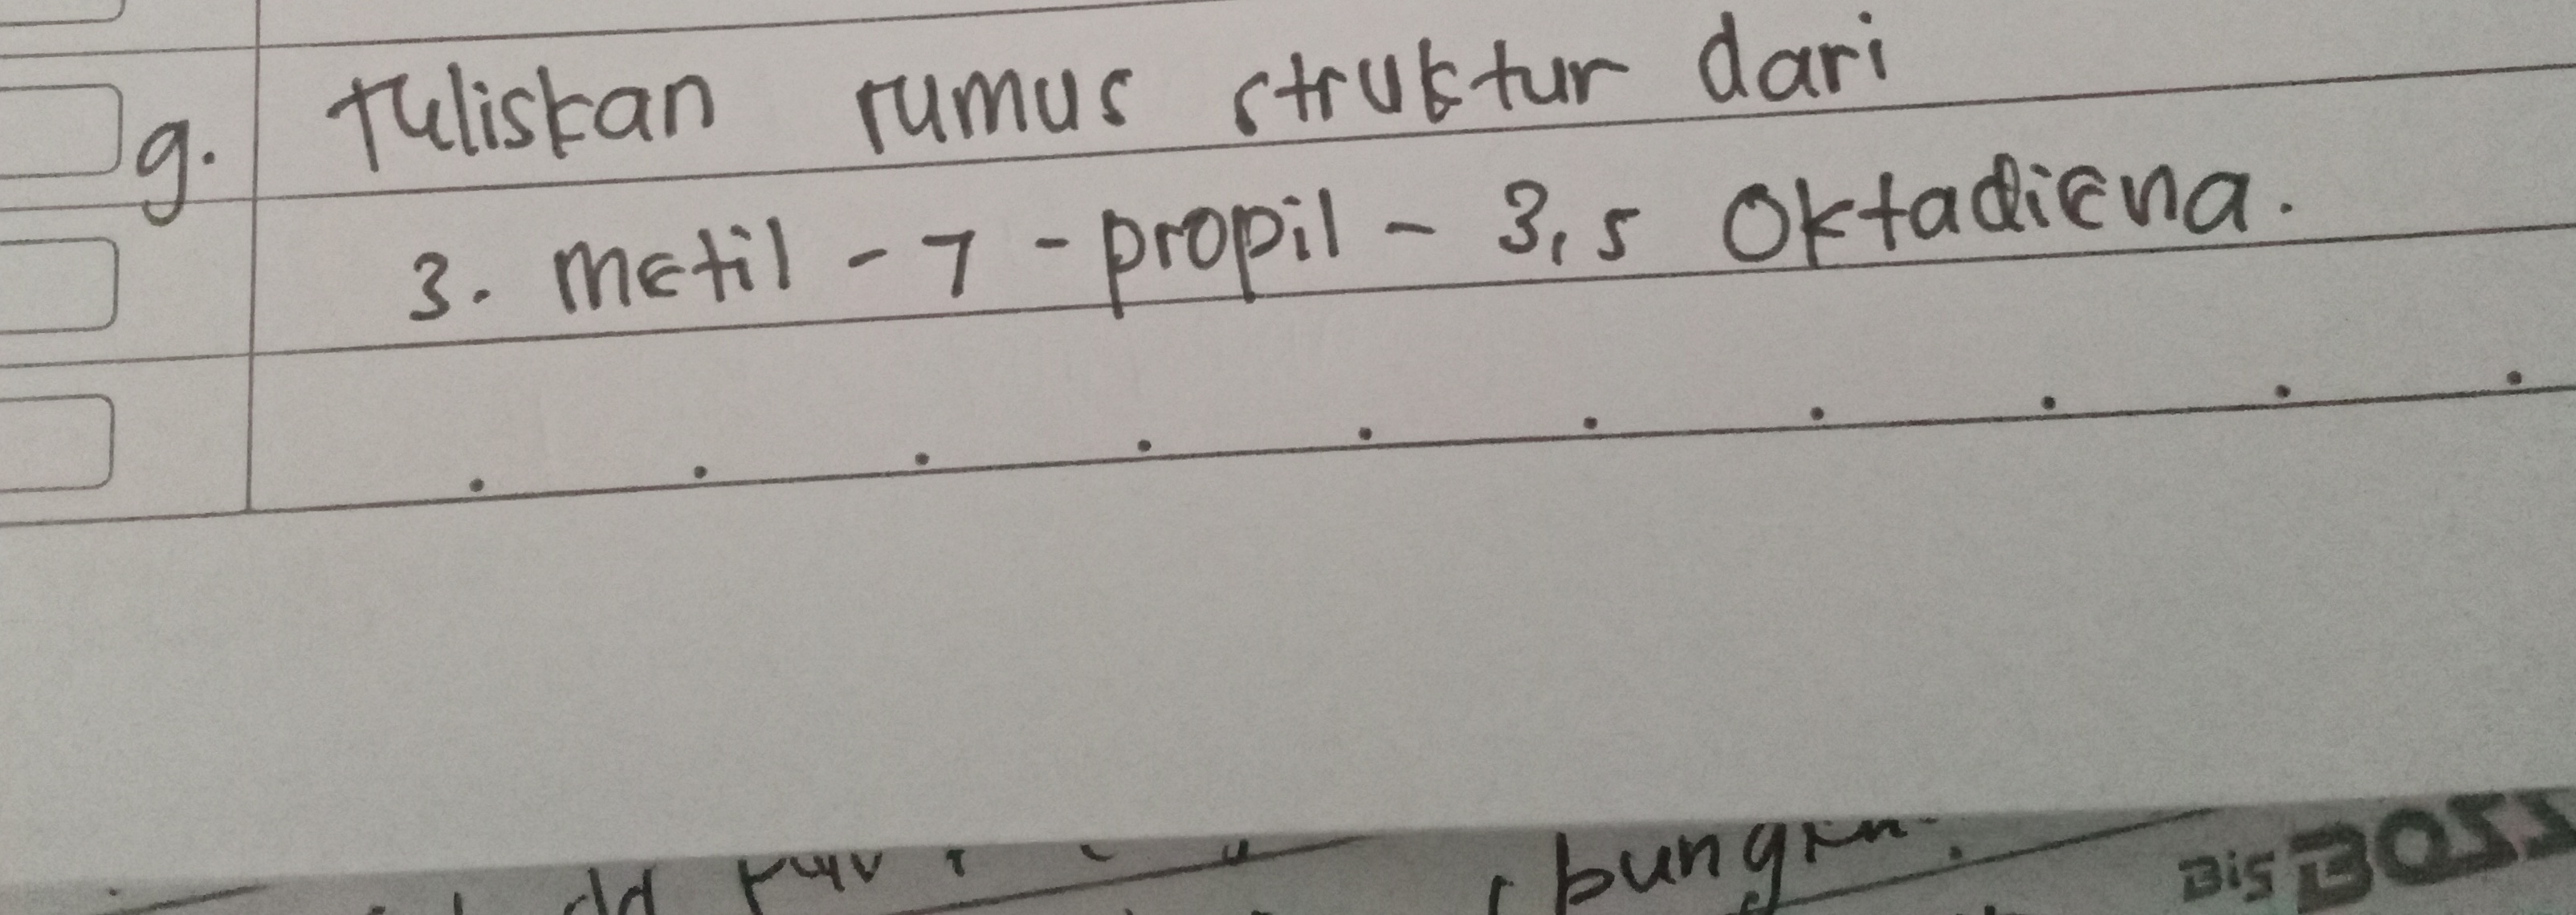 g. Tuliskan rumus struktur dari
3. metil - 7 - propil - 3,5 Oktadiena.
bungkn.
BigBOSS